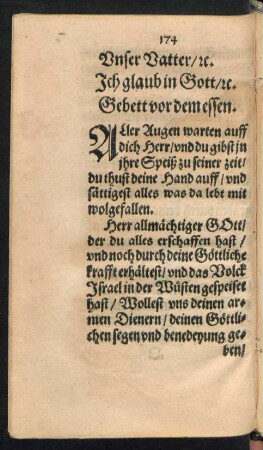 174
Vnser Vatter/ꝛc.
Ich glaub in Gott/ꝛc.
Gebett vor dem essen.
ALler Augen warten auff
dich Herr/vnd du gibst in
jhre Speiß zu seiner zeit/
du thust deine Hand auff/vnd
sättigest alles was da lebt mit
wolgefallen.
Herr allmächtiger GOtt/
der du alles erschaffen hast/
vnd noch durch deine Göttliche
krafft erhältest/vnd das Volck
Israel in der Wüsten gespeiset
hast/Wollest vns deinen ar-
men Dienern/deinen Göttli-
chen segen vnd benedeyung ge-
ben/